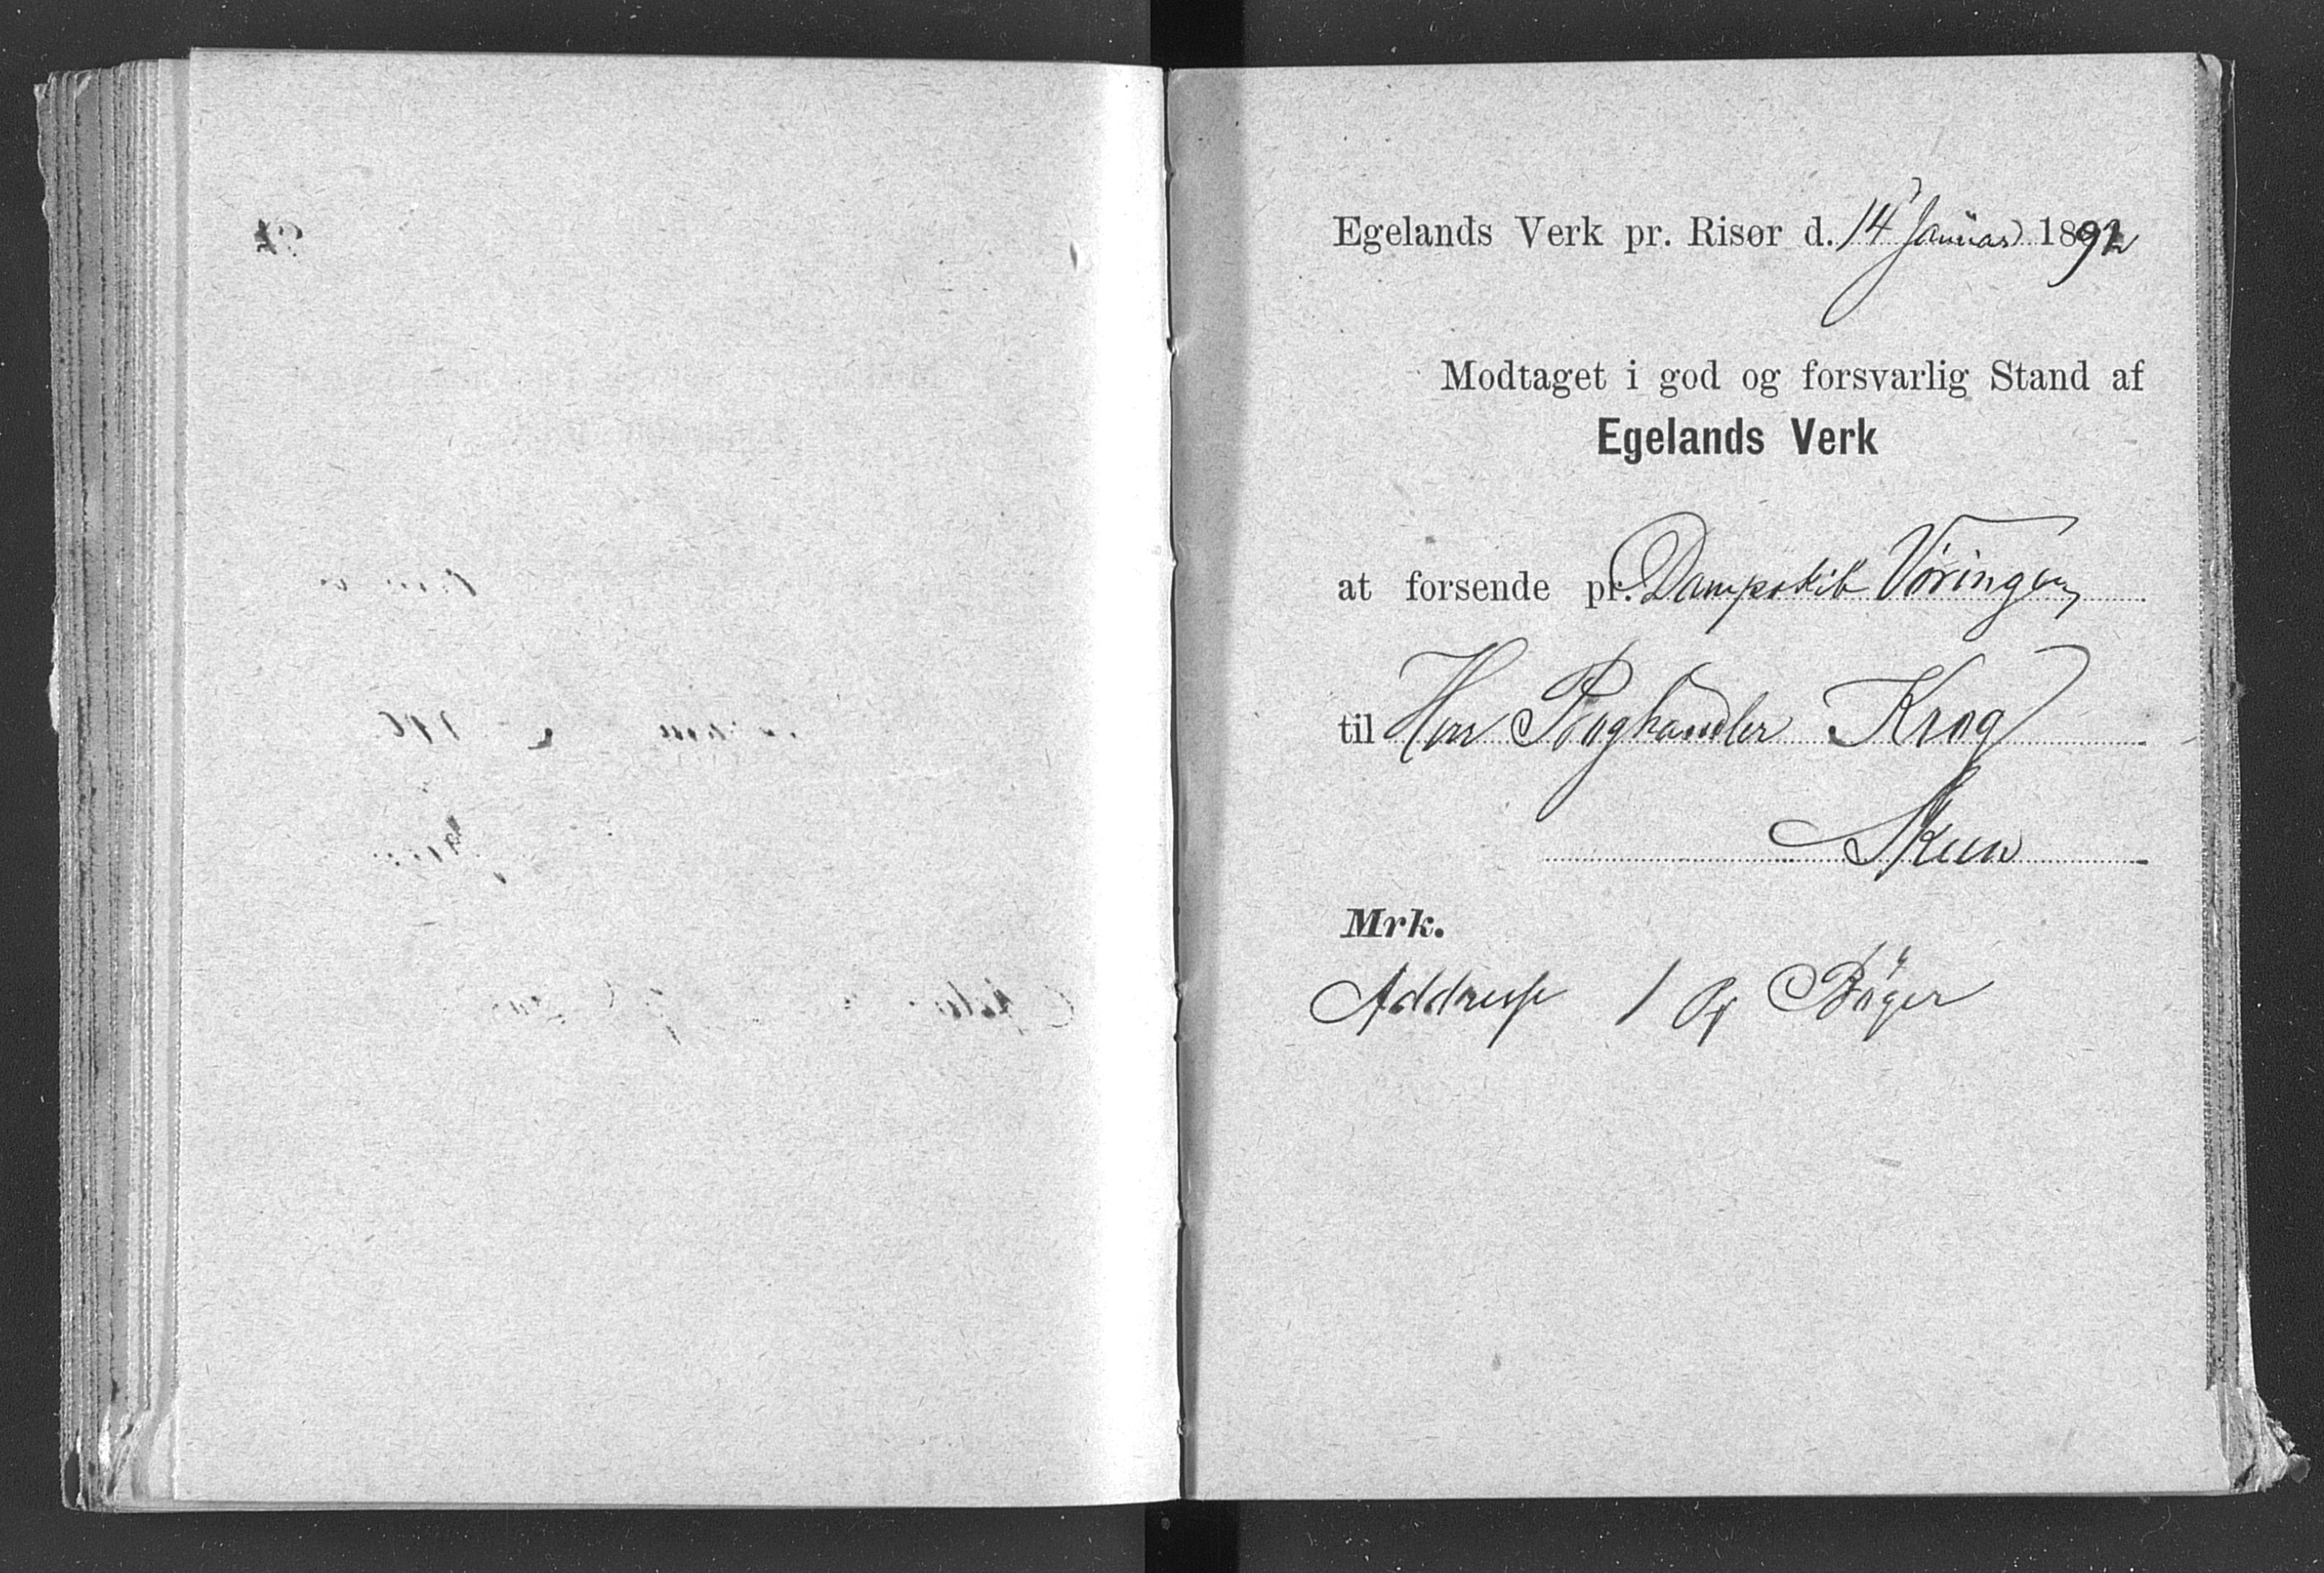 Egelands Verk pr. Risør d. 14 Januar 1892
Modtaget i god og forsvarlig Stand af
Egelands Verk
at forsende pr. Dampskib Vøringen
til Herr Boghandler Krog
Skien
Mrk.
Addresse 1 Pk Bøger